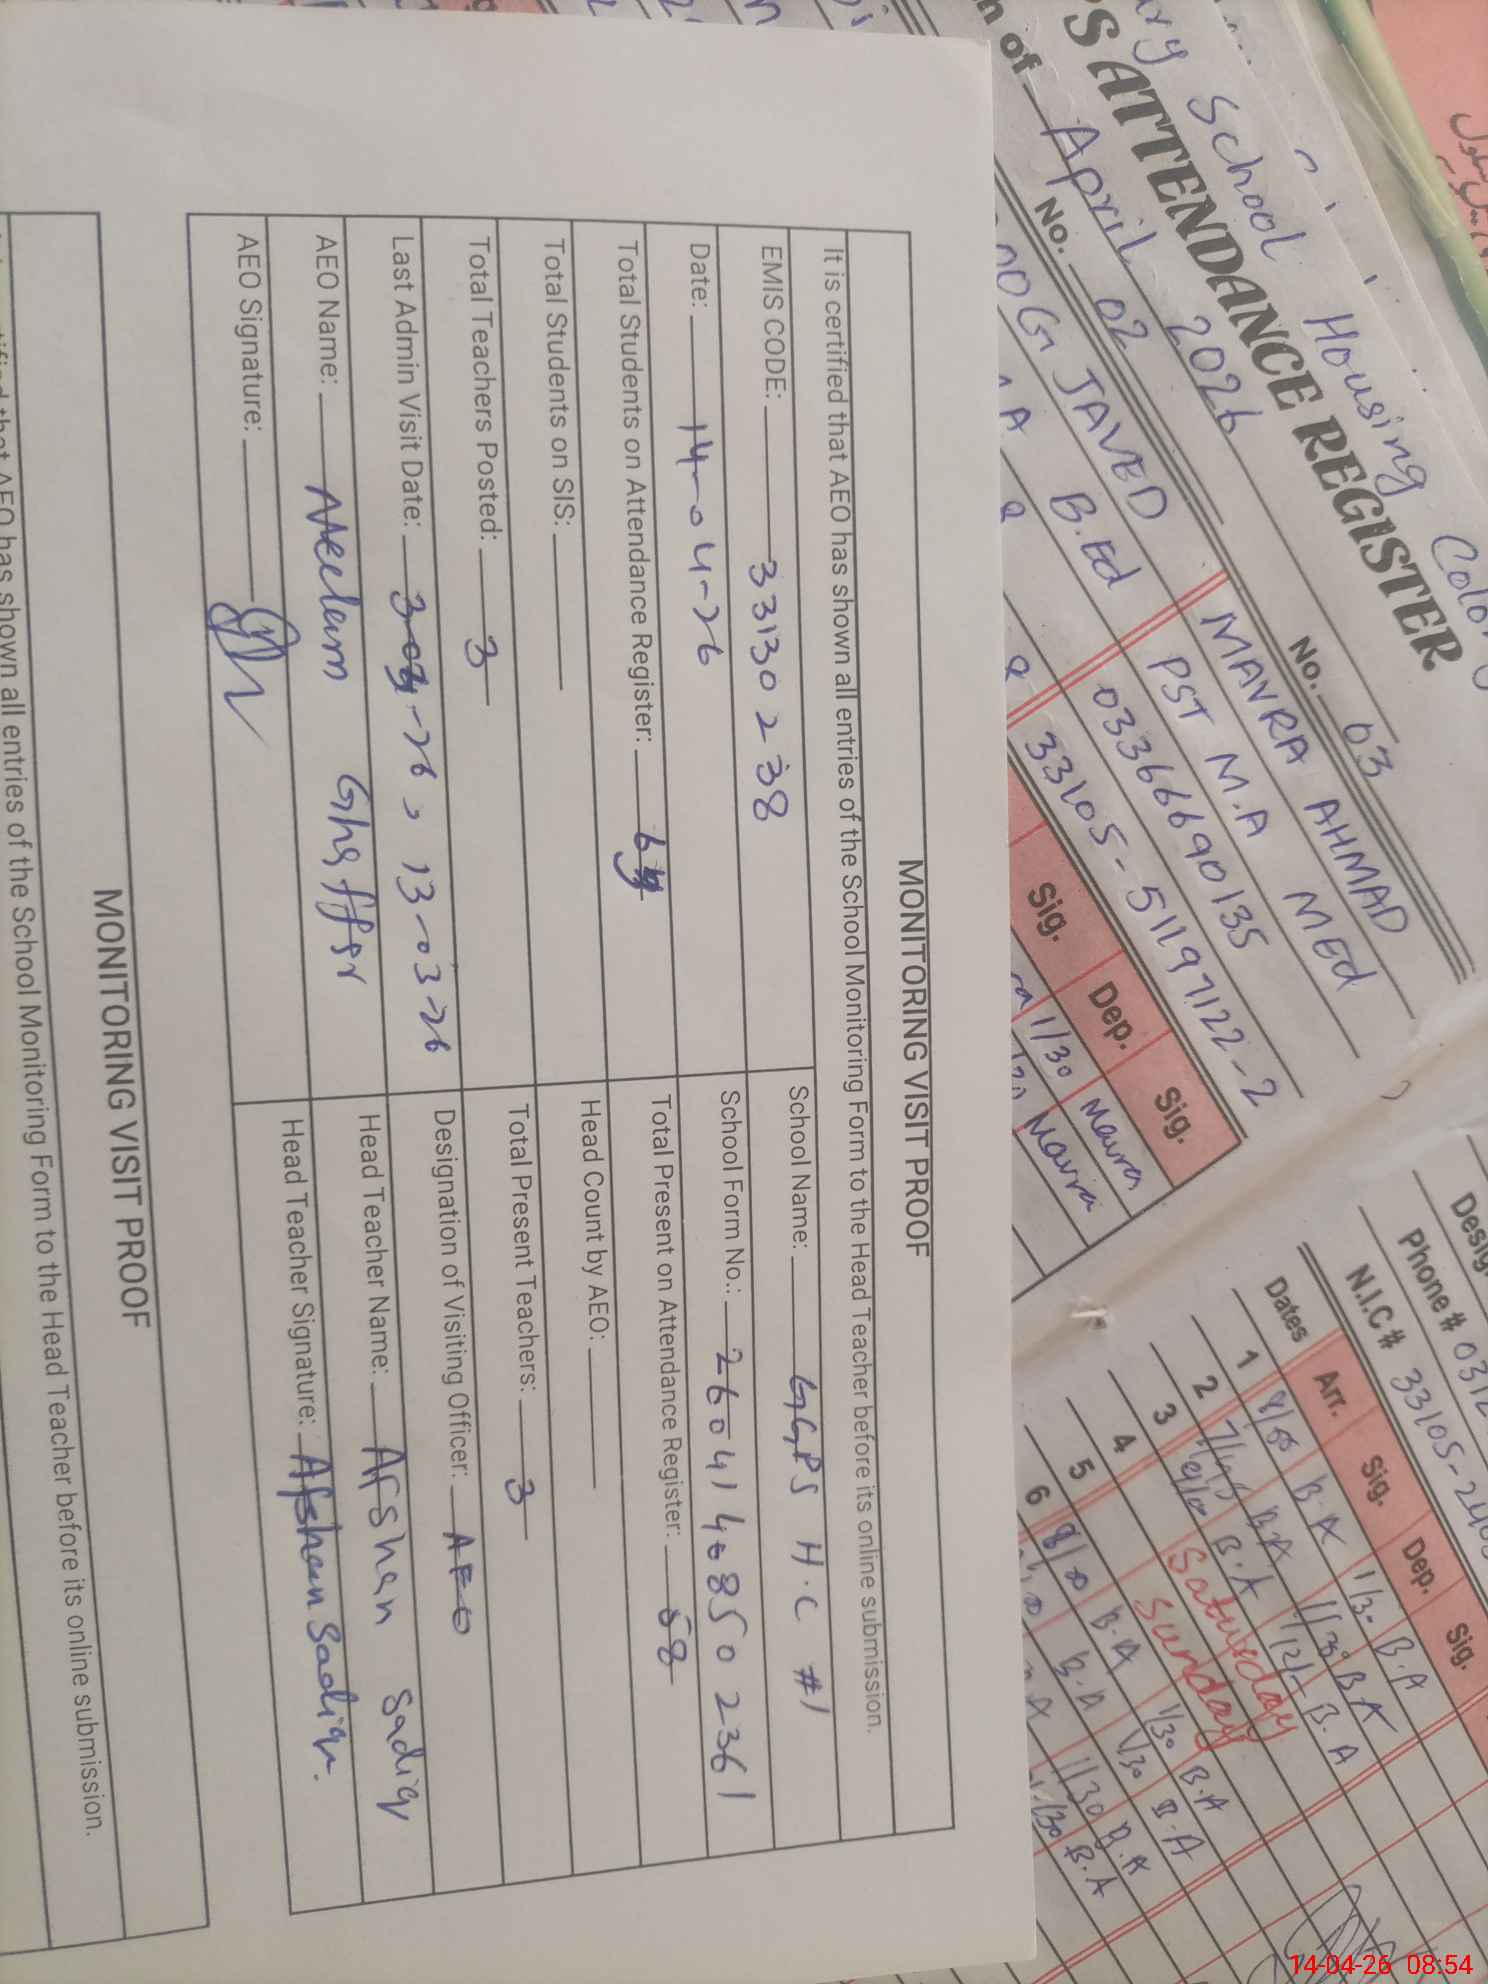 MONITORING VISIT PROOF
It is certified that AEO has shown all entries of the School Monitoring Form to the Head Teacher before its online submission.
EMIS CODE: 33130238 School Name: GGPS H.C #1
Date: 14-04-26 School Form No.: 26041408502361
Total Students on Attendance Register: Total Present on Attendance Register: 58
Total Students on SIS: Head Count by AEO:
Total Teachers Posted: 3 Total Present Teachers: 3
Last Admin Visit Date: 13-03-26 Designation of Visiting Officer: AEO
AEO Name: Neelam Ghaffar Head Teacher Name: Afshan Sadiq
AEO Signature: Head Teacher Signature: Afshan Sadiq.
MONITORING VISIT PROOF
that AEO has shown all entries of the School Monitoring Form to the Head Teacher before its online submission.
School Housing
ATTENDANCE REGISTER
of April 2026
No. 02 No. 03
JAVED MAVRA AHMAD
B.Ed PST M.A MEd
03366690135
33105-5119122-2
Sig. Dep. Sig.
1/30 Mavra
Mavra
Phone # 0312
N.I.C # 33105-240
Dates Arr. Sig. Dep. Sig.
1 8/00 B.A 1/30 B.A
2 B.A 1/30 B.A
3 B.A 1/12 B.A
4 Saturday
5 Sunday
6 8/00 B.A 1/30 B.A
B.A 1/30 B.A
1/30 B.A
1/30 B.A
14-04-26 08:54